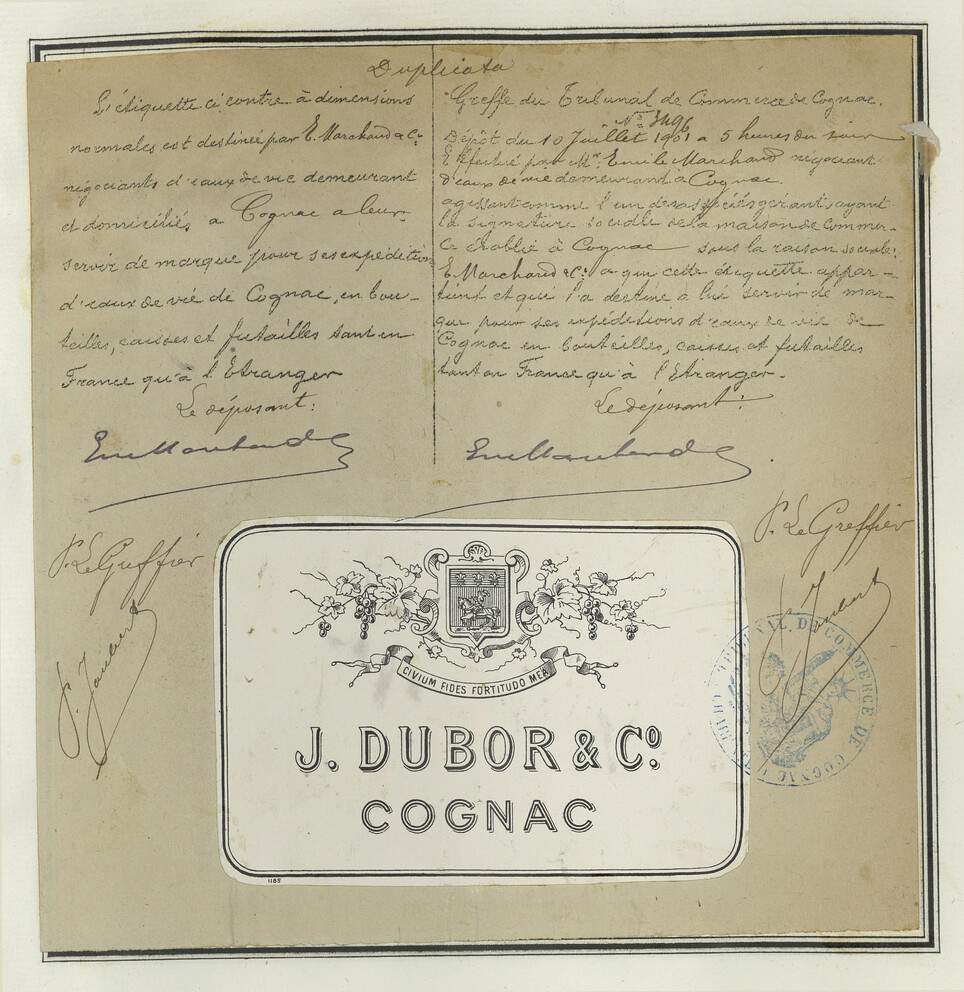 Duplicata
L'étiquette ci contre à dimensions
normales est destinée par E. Marchand & Cie
négociants d'eaux de vie demeurant
et domiciliés a Cognac a leur
servir de marque pour ses expéditions
d'eaux de vie de Cognac, en bou-
teilles, caisses et futailles tant en
France qu'à l'Etranger
Le déposant:
Em Marchand
P. Le Greffier
P. Joubert
Greffe du Tribunal de Commerce de Cognac.
No 3496
Dépôt du 10 Juillet 1901 a 5 heures du soir
Effectué par Mr. Emile Marchand négociant
d'eaux de vie demeurant à Cognac.
agissant comme l'un des associés gérant, ayant
la signature sociale de la maison de Commer-
ce établie à Cognac sous la raison sociale:
E. Marchand & Cie a qui cette étiquette appar-
tient et qui l'a destine à lui servir de mar-
que pour ses expéditions d'eaux de vie de
Cognac en bouteilles, caisses et futailles
tant en France qu'à l'Etranger.
Le déposant:
Em Marchand
P. Le Greffier
P. Joubert
TRIBUNAL DE COMMERCE DE COGNAC
CIVIUM FIDES FORTITUDO MEA
J. DUBOR & Co.
COGNAC
1185